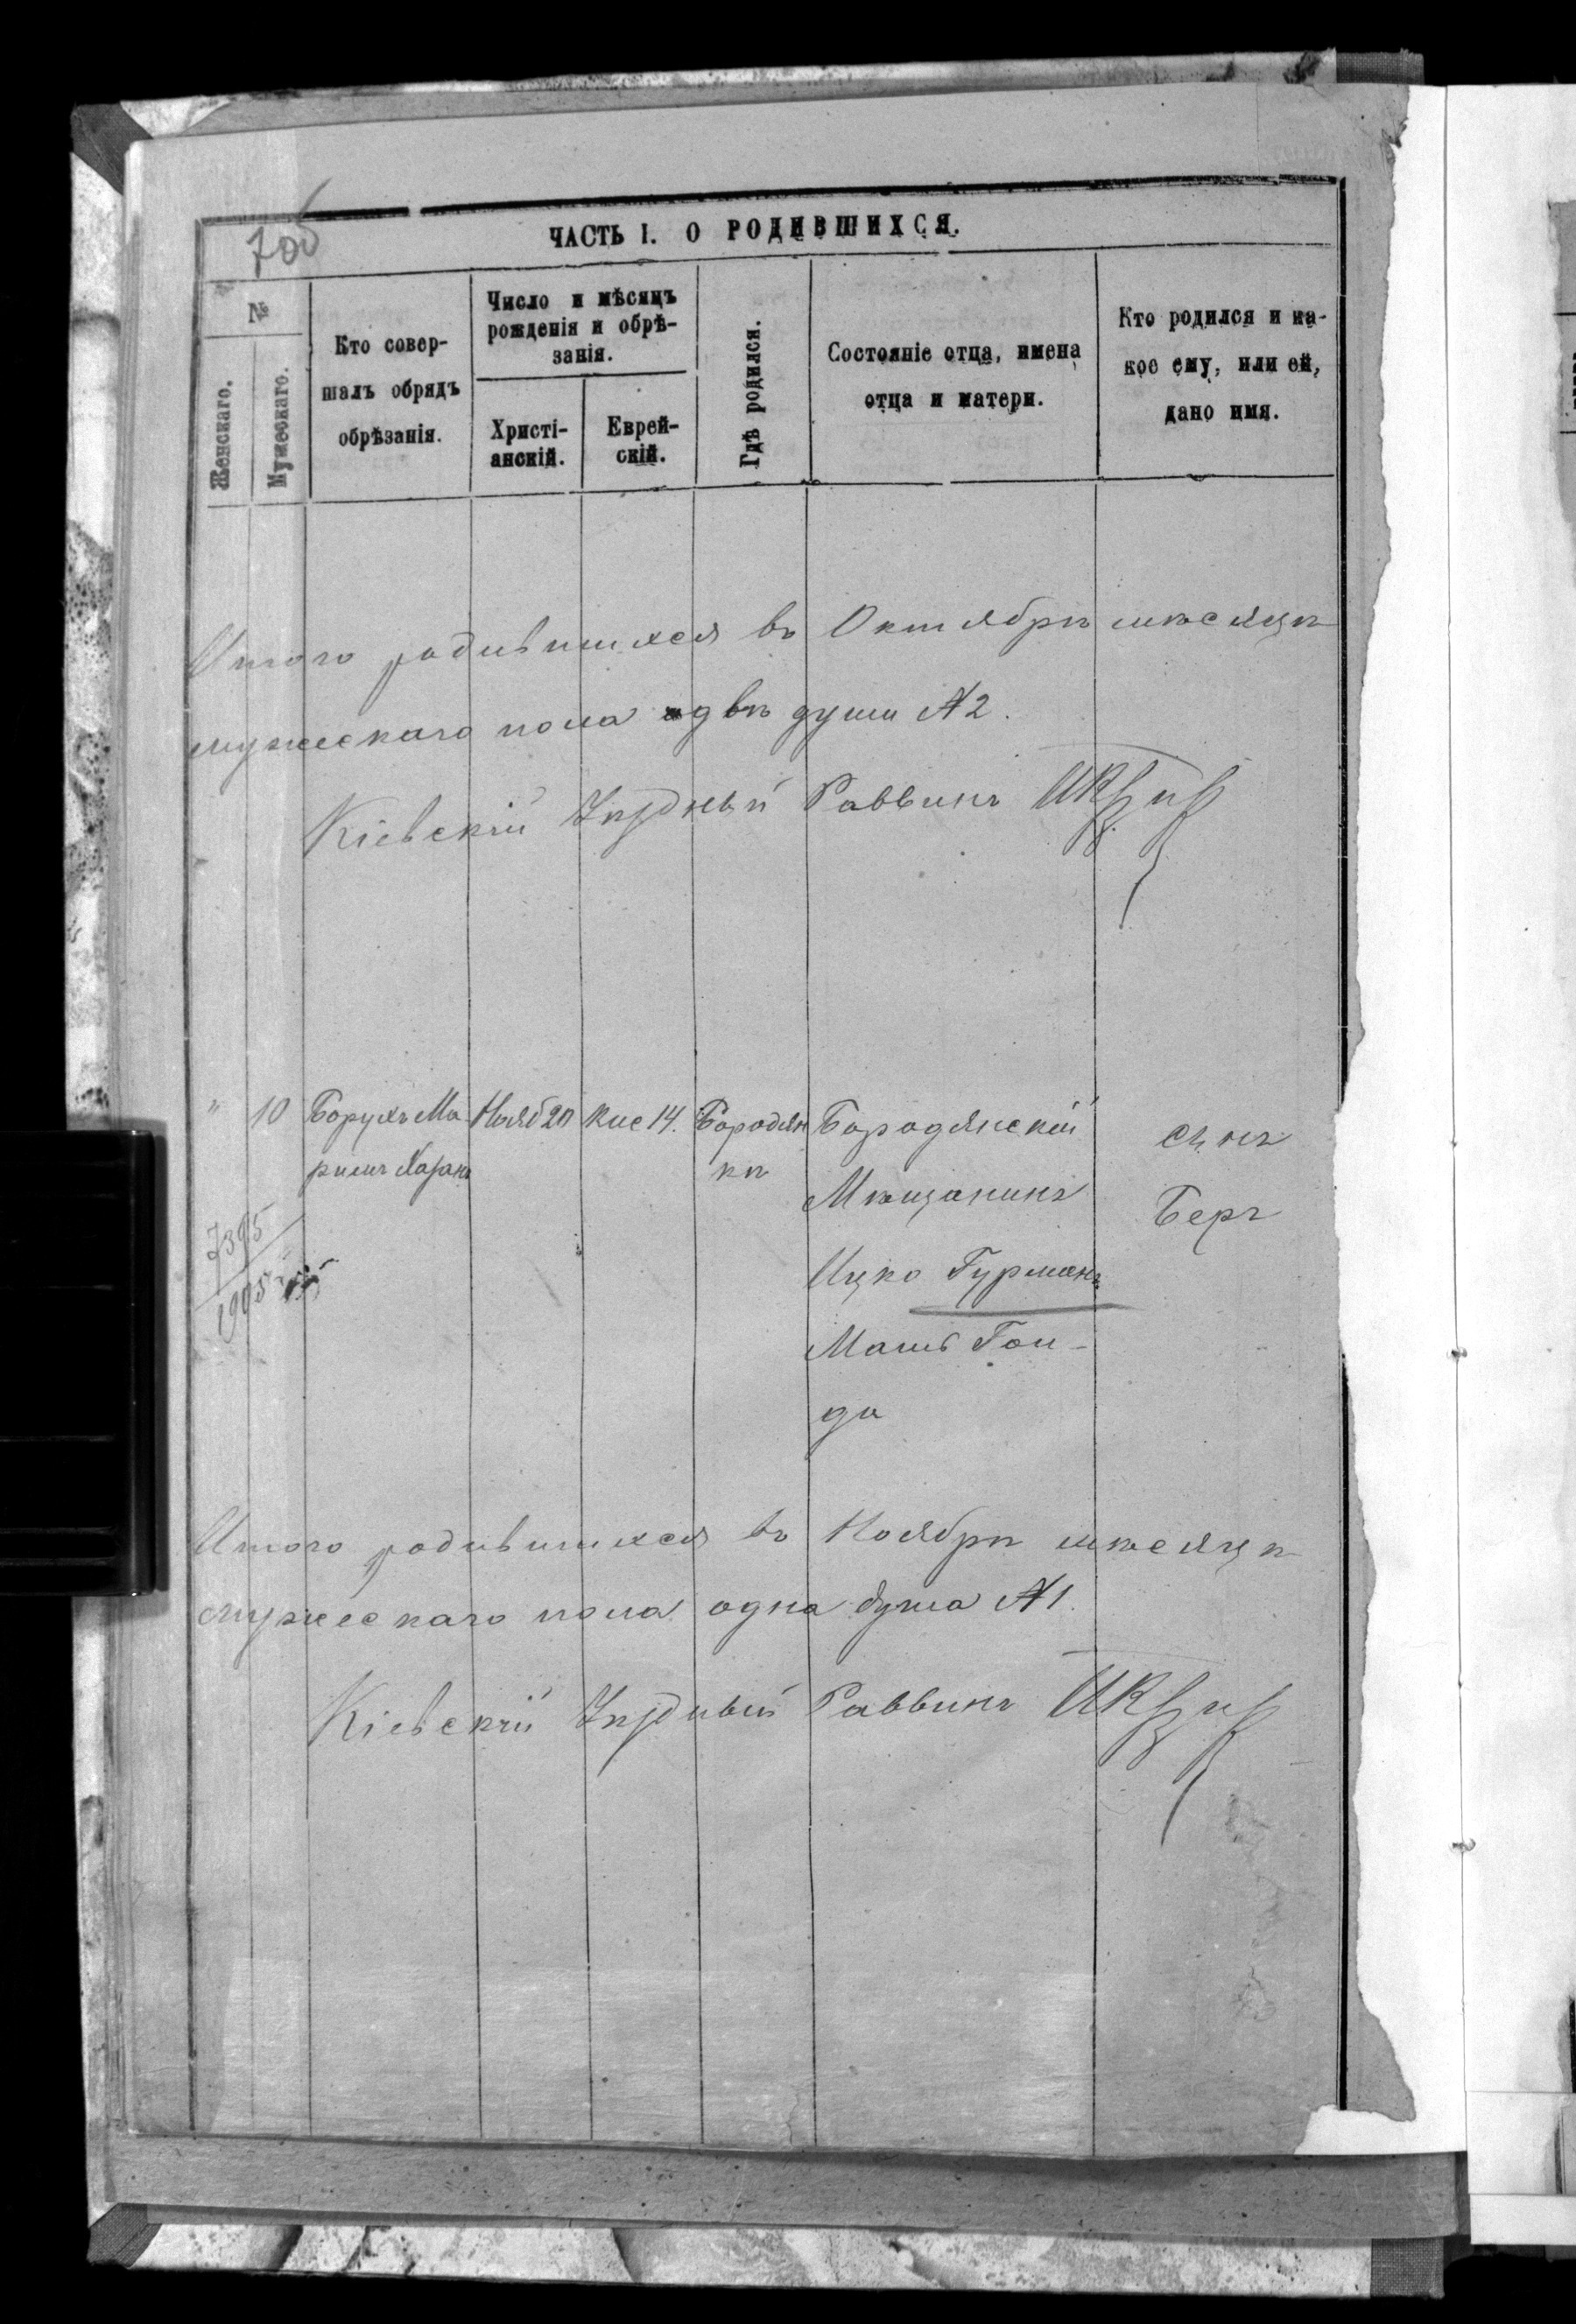 70об
ЧАСТЬ I. О РОДИВШИХСЯ.
№
Женскаго.
Мужескаго.
Кто совер-
шалъ обрядъ
обрѣзанія.
Число и мѣсяцъ
рожденія и обрѣ-
занія.
Христі-
анскій.
Еврей-
скій.
Гдѣ родился.
Состояніе отца, имена
отца и матери.
Кто родился и ка-
кое ему, или ей,
дано имя.
Итого родившихся въ Октябрѣ мѣсяцѣ
мужескаго пола двѣ души №2.
Кіевскій Уѣздный Раввинъ
" 10 Борухъ Ма Нояб 20 Кис 14. Бородян Бородянскій сынъ
кѣ Мѣщанинъ Беръ
7395
1905
Ицко Гурманъ
Мать Гол-
да
Итого родившихся въ Ноябрѣ мѣсяцѣ
мужескаго пола одна душа №1.
Кіевскій Уѣздный Раввинъ